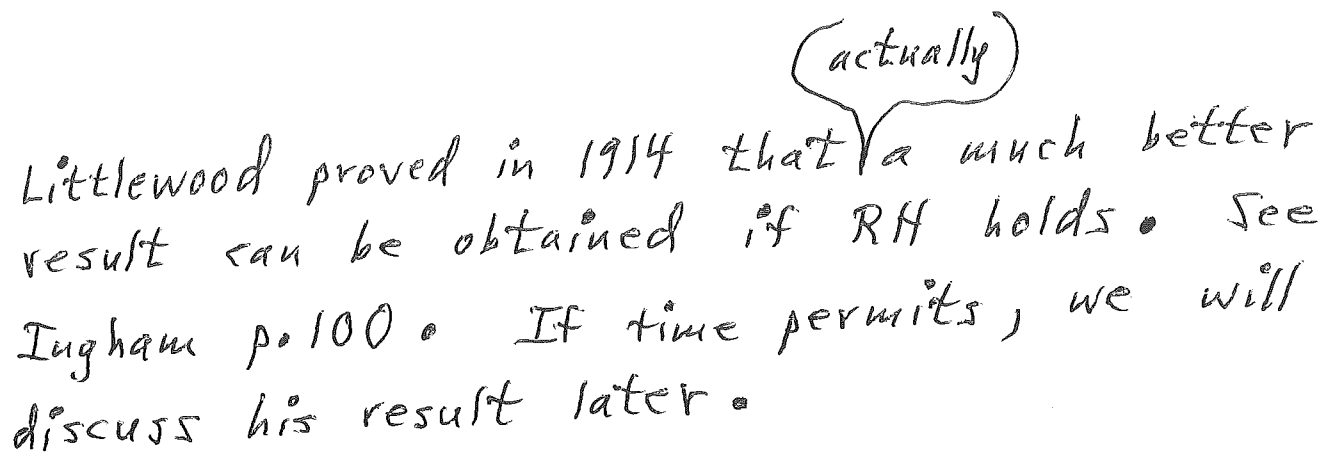 (actually)
Littlewood proved in 1914 that a much better
result can be obtained if RH holds. See
Ingham p. 100. If time permits, we will
discuss his result later.